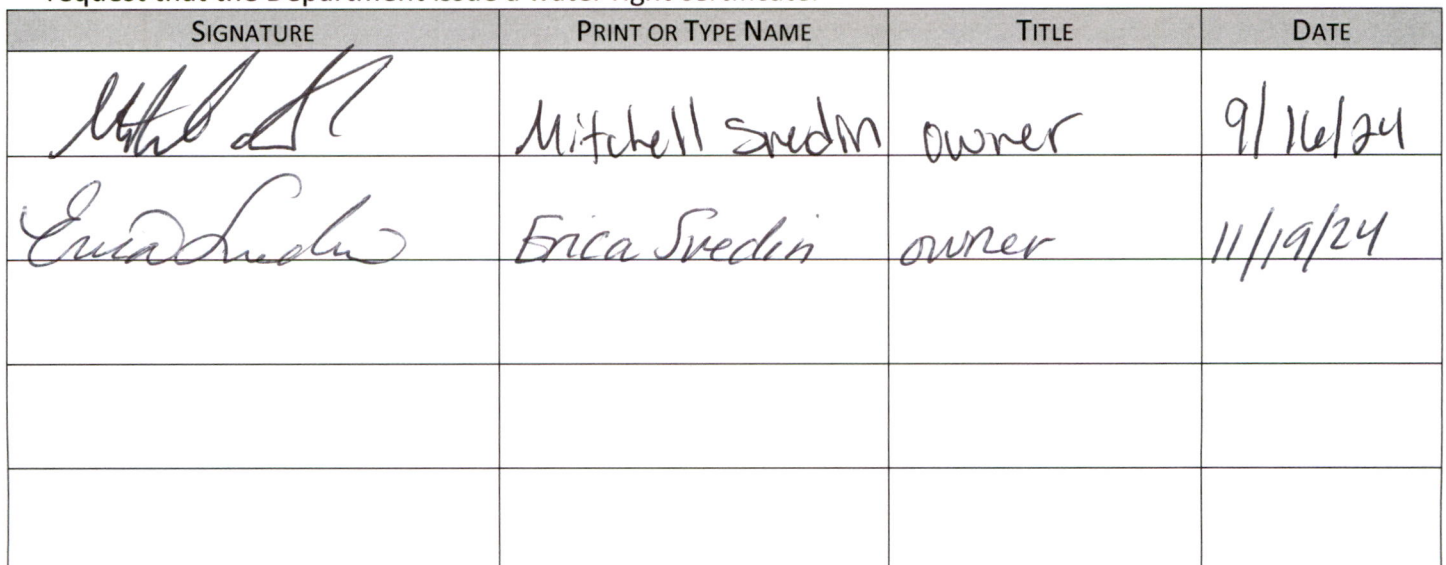 request that the Department issue a water right certificate.
SIGNATURE PRINT OR TYPE NAME TITLE DATE
Mitchell Svedin owner 9/16/24
Erica Svedin Erica Svedin owner 11/19/24